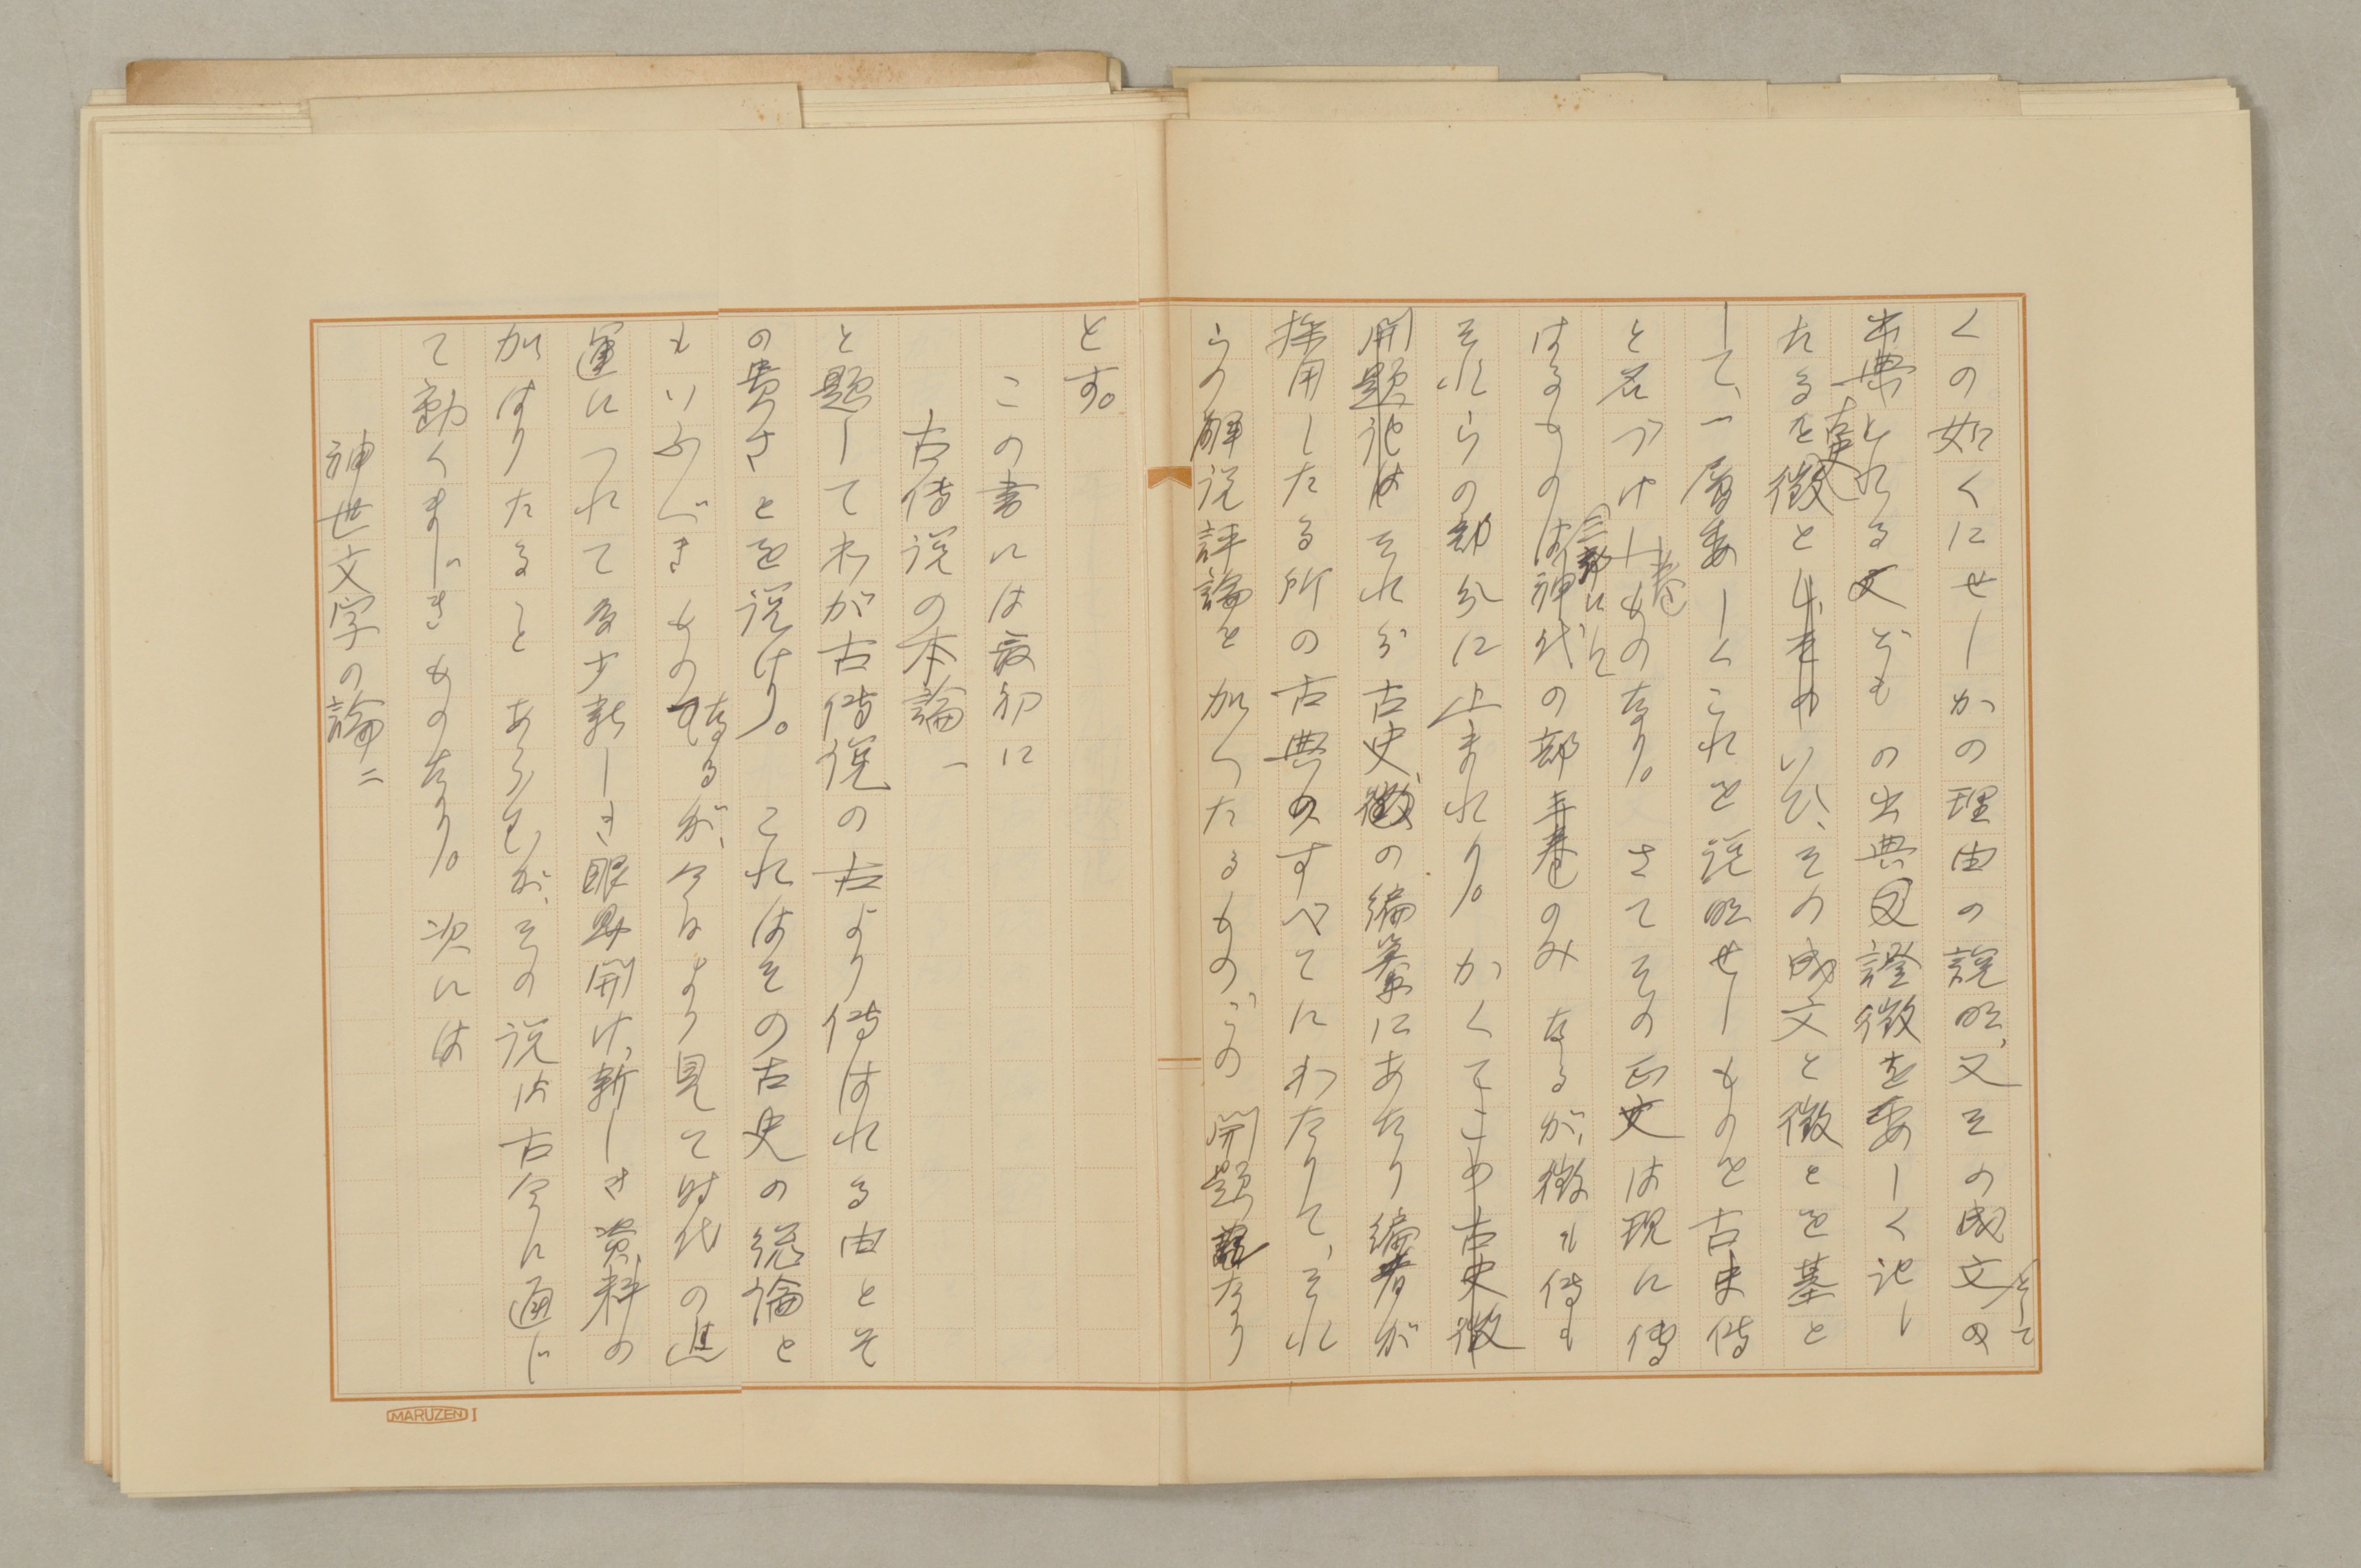 くの如くにせしかの理由の説明、又その成文の
として
出典とれる文どもの出典又證徴を委しく記し
古史
たるを徴といひ、その成文と徴とを基と
して、一層委しくこれを説明せしものを古史傳
と名づけしものなり。さてその正史は現に傳
巻
はるものは神代の部のみなるが、徴も傳も
三部に
それらの部分に止まれり。かくてこの古史徴
開題記はそれが古史徴の編纂にあたり編者が
採用したる所の古典のすべてにわたりて、それ
らの解説評論を加へたるもの、この開題記なり
とす。
この書には最初に
古傳説の本論一
と題してわが古傳説の古より傳はれる由とそ
の貴きことを説けり。これはその古史の総論と
もいふべきものなるが、今日より見て時代の進
運につれて多少新しき眼界開け、新しき資料の
加はりたることあらむが、その説は古今に通じ
て動くまじきものなり。次には
神世文字の論二
MARUZEN I